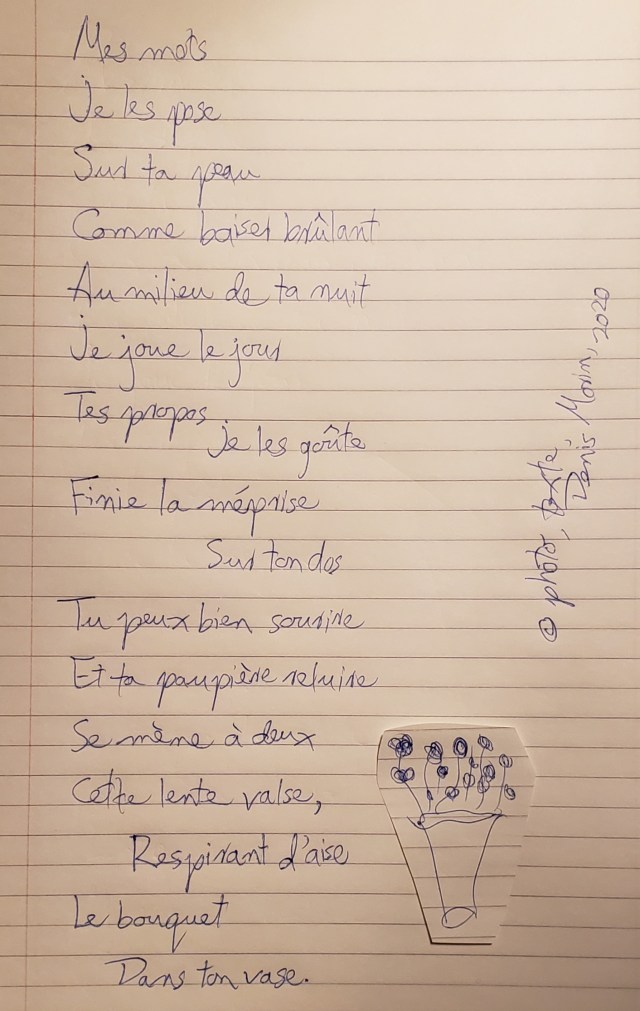 Mes mots
Je les pose
Sur ta peau
Comme baiser brûlant
Au milieu de ta nuit
Je joue le jour
Tes propos
je les goûte
Finie la méprise
Sur ton dos
Tu peux bien sourire
Et ta paupière reluire
Se mène à deux
Cette lente valse,
Respirant d'aise
Le bouquet
Dans ton vase.
© photo, texte,
Denis Morin, 2020